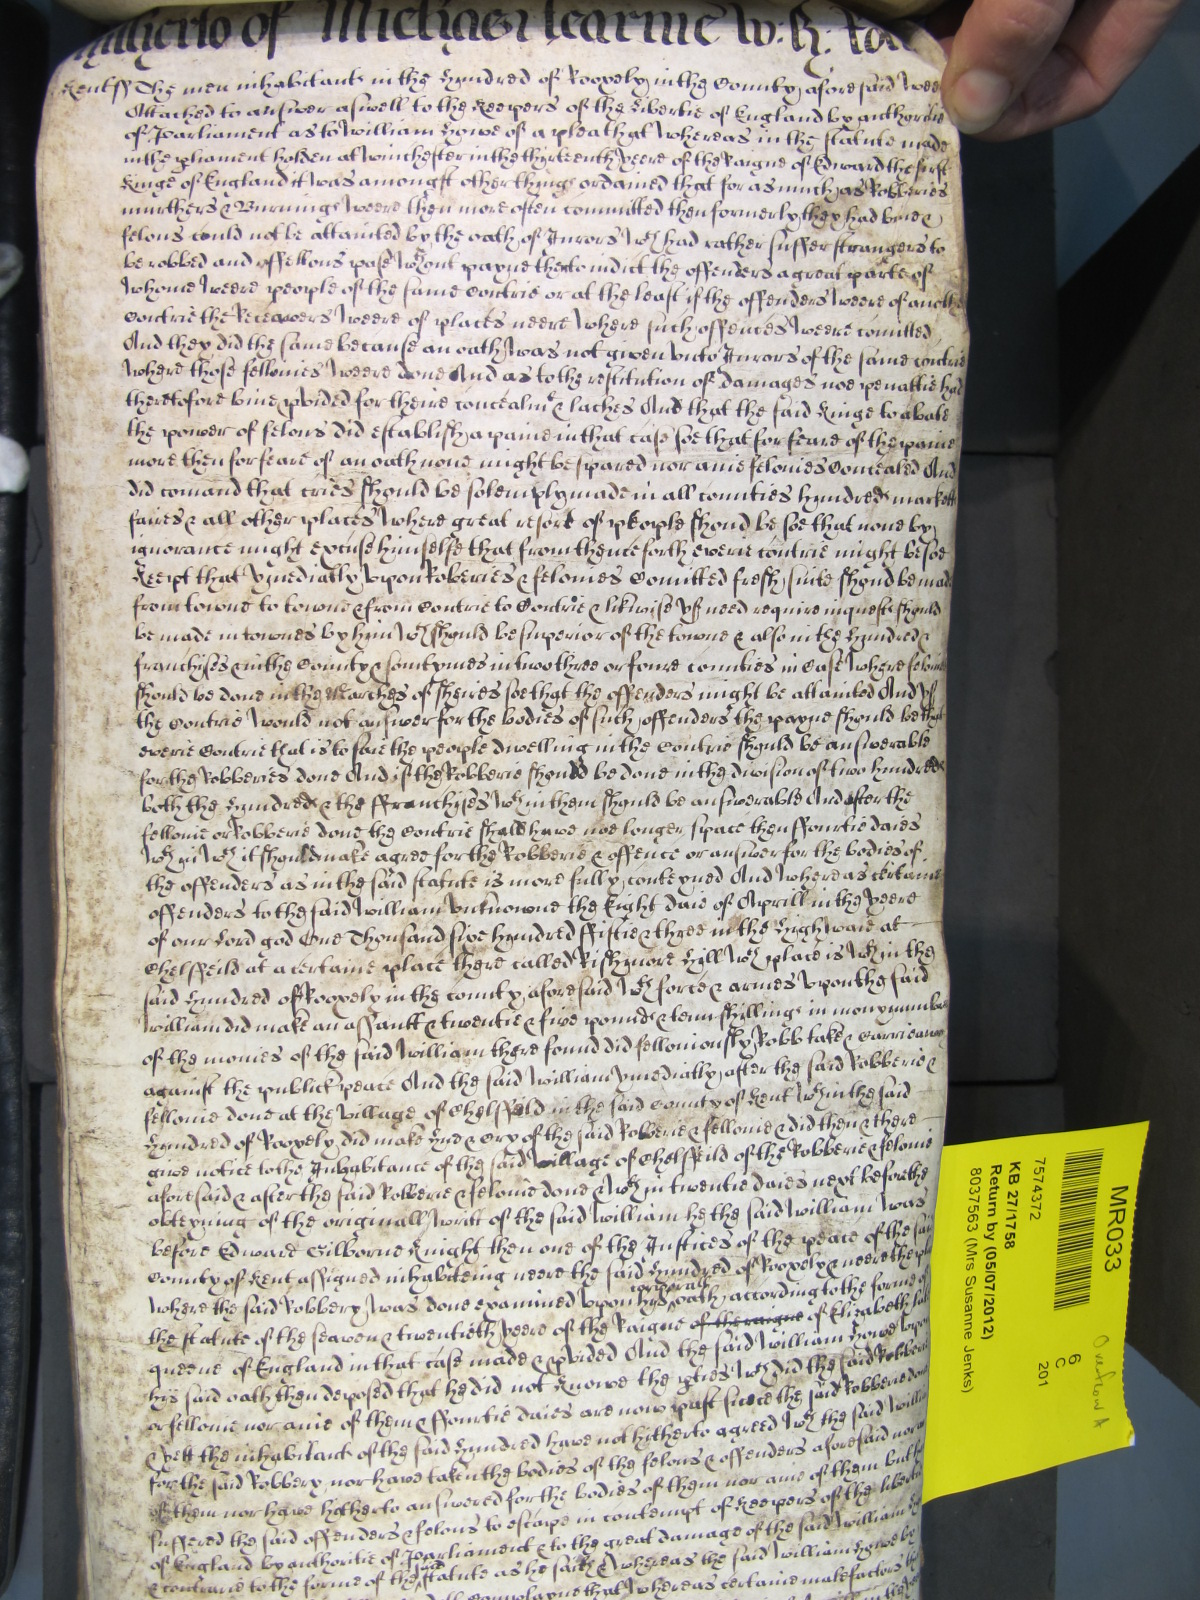 of Michaes tearme W. R:
Kent ss The men inhabitants in the hundred of Rooxely in the County aforesaid were
Attached to answer aswell to the Keepers of the Libertie of England by authoritie
of Parliament as to William Howe of a plea that whereas in the statute made
in the pliament holden at Winchester in the thirteenth yeere of the Raigne of Edward the first
Kinge of England it was amongst other things ordained that for as much as Robberies
murthers & Burnings weere then more often committed then formerly they had bine &
felons could not be attainted by the oath of Jurors wch had rather suffer strangers to
be robbed and offellons passe wthout payne then to indict the offenders a great parte of
whome weere people of the same Contrie or at the least if the offenders weere of another
Contrie the Receavors weere of places neere where such offences weere comitted
And they did the same because an oath was not given unto Jurors of the same contrie
where those fellonies weere done And as to the restitution of damages noe penaltie had
theretofore bine pvided for theire concealmt & laches And that the said Kinge to abate
the power of felons did establish a paine in that case soe that for feare of the paine
more then for feare of an oath none might be spared nor anie felonies Concealed And
did comand that cries should be solemply made in all counties hundreds marketts
faires & all other places where great resort of people shoud be soe that none by
ignorance might excuse himselfe that from thenceforth everie contrie might be soe
Keept that ymediatly upon Roberies & felonies Comitted fresh suite shoud be made
from towne to towne & from Contrie to Contrie & likwise yf need require inquests should
be made in townes by him wch should be superior of the towne & also in the hundred &
franchises & in the County & somtymes in two three or foure counties in Case where felonies
should be done in the Marches of sheires soe that the offenders might be attainted And yf
the Contrie would not answer for the bodies of such offenders the payne should be that
everie Contrie that is to saie the people dwelling in the Contrie should be answerable
for the Robberies done And if the Robberie should be done in the division of two hundreds
both the hundreds & the ffranchises wthin them should be answerable And after the
fellonie or Robberie done the Contrie shall have noe longer space then ffourtie daies
wthin wch it should make agree for the Robberie & offence or answer for the bodies of
the offenders as in the said statute is more fully conteyned And whereas certaine
offenders to the said William unknowne the Eight daie of Aprill in the yeere
of our Lord god One Thousand sixe hundred ffiftie & three in the highwaie at
Chelsfeild at a certaine place there called Rishmore hill wch place is wthin the
said hundred of Rooxely in the county aforesaid wth force & armes upon the said
William did make an assault & twentie & five pounds & tenn shillings in monynumbred
of the monies of the said William there found did felloniously Robb take & Carrie away
against the publick peace And the said William ymediatly after the said Robberie &
fellonie done at the Village of Chelsfeild in the said County of Kent wthin the said
hundred of Rooxely did make hue & Cry of the said Robberie & fellonie & did then & there
give notice to the Inhabitance of the said village of Chelsfeild of the Robberie & felonie
aforesaid & after the said Robberie & felonie done & wthin twentie daies next before the
obteyning of the originall writt of the said William he the said William was
before Edward Gilborne Knight then one of the Justices of the peace of the said
County of Kent assigned inhabiteing neere the said hundred of Rooxely & neere the place
where the said Robbery was done examined upon his corporall oath according to the forme of
the statute of the seaven & twentieth yeere of the Raigne of the raigne of Elizabeth late
queene of England in that case made & pvided And the said William Howe upon
his said oath then deposed that he did not Knowe the pties wch did the said Robberie
or fellonie nor anie of them & ffourtie daies are now past since the said Robberie done
& yett the inhabitants of the said hundred have not hitherto agreed wth the said William
for the said Robbery nor have taken the bodies of the felons & offenders aforesaid nor
of them nor have hitherto answered for the bodies of them nor anie of them but
suffered the said offenders & felons to escape in contempt of Keepers of the libertie
of England by authoritie of Parliament & to the great damage of the said William
& contrarie to the forme of the said statute as he saith & whereas the said William Howe by
that whereas certaine malefactors
MR033
7574372
KB 27/1758
Return by (05/07/2012)
8037563 (Mrs Susanne Jenks)
6
C
201
Overflow A